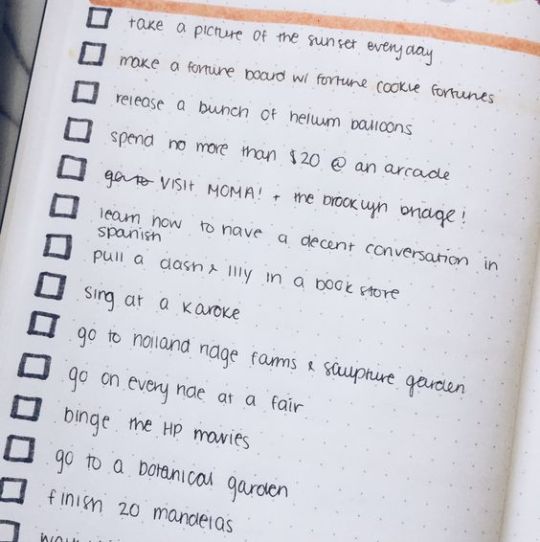 take a picture of the sunset everyday
make a fortune board w/ fortune cookie fortunes
release a bunch of helium balloons
spend no more than $20 @ an arcade
go to VISIT MOMA! + the brooklyn bridge!
learn how to have a decent conversation in
spanish
pull a dash & lily in a book store
sing at a karoke
go to holland ridge farms & sculpture garden
go on every ride at a fair
binge the HP movies
go to a botanical garden
finish 20 mandelas